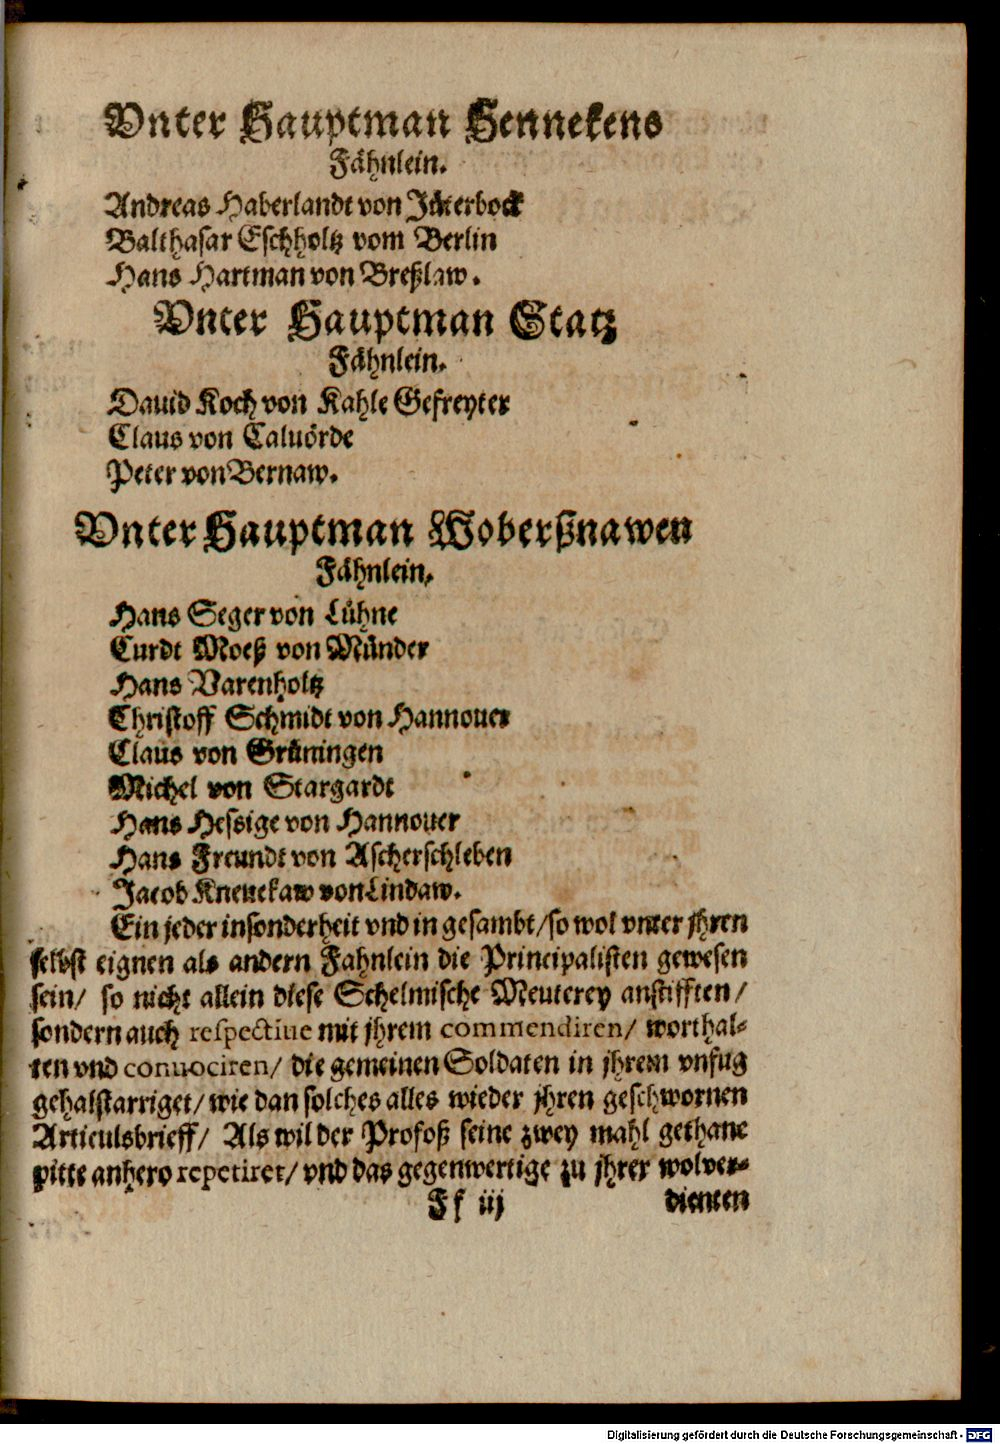 Vnter Hauptman Hennekens
Fähnlein.
Andreas Haberlandt von Jüterbock
Balthasar Eschholtz vom Berlin
Hans Hartman von Breßlaw.
Vnter Hauptman Statz
Fähnlein.
Dauid Koch von Kahle Gefreyter
Claus von Caluörde
Peter von Bernaw.
Vnter Hauptman Woberßnawen
Fähnlein.
Hans Seger von Lühne
Curdt Moeß von Münder
Hans Varenholtz
Christoff Schmidt von Hannouer
Claus von Grüningen
Michel von Stargardt
Hans Hessige von Hannouer
Hans Freundt von Ascherschleben
Jacob Kneuekaw von Lindaw.
Ein jeder insonderheit vnd in gesambt/ so wol vnter jhren
selbst eignen als andern Fahnlein die Principalisten gewesen
sein/ so nicht allein diese Schelmische Meuterey anstifften/
sondern auch respectiue mit jhrem commendiren/ worthal-
ten vnd conuociren/ die gemeinen Soldaten in jhrem vnfug
gehalstarriget/ wie dan solches alles wieder jhren geschwornen
Articulsbrieff/ Als wil der Profoß seine zwey mahl gethane
pitte anhero repetiret/ vnd das gegenwertige zu jhrer wolver-
Ff iij dienten
Digitalisierung gefördert durch die Deutsche Forschungsgemeinschaft - DFG